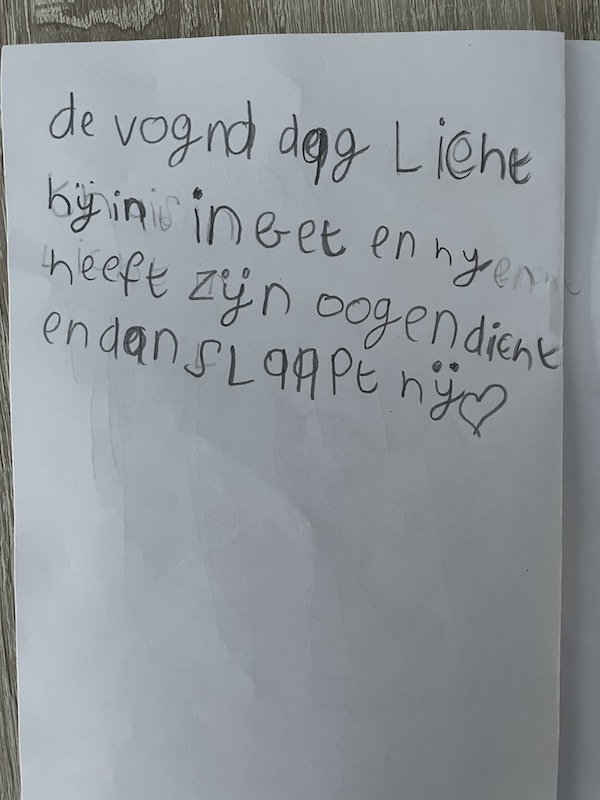 de vognd dag Licht
hÿ in in Bet en hy
heeft zÿn oogen dicht
en dan sLaapt hÿ